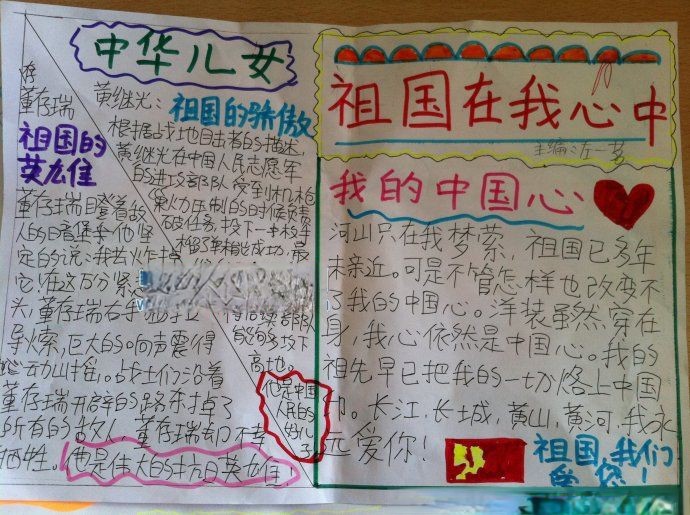 中华儿女
董存瑞
祖国的
英雄
董存瑞瞪着敌
人的暗堡坐他坚
定的说：我去炸掉
它！在这万分紧
头，董存瑞右手
导索，巨大的响声震得
地动山摇。战士们沿着
董存瑞开辟的路炸掉了
所有的敌人，董存瑞却不幸
牺牲。他是伟大的抗日英雄！
黄继光：祖国的骄傲
根据战地目击者的描述，
黄继光在中国人民志愿军
的进攻部队受到机枪
火力压制的时候负责
爆破任务，投下一枚手
榴弹
成功，最
后续部队
能够攻下
高地。
他是中国
人民的
好儿
子
祖国在我心中
主编：左一梦
我的中国心
河山只在我梦萦，祖国已多年
未亲近。可是不管怎样也改变不
了我的中国心。洋装虽然穿在
身，我心依然是中国心。我的
祖先早已把我的一切烙上中国
印。长江，长城，黄山，黄河，我永
远爱你！
祖国，我们
爱您！